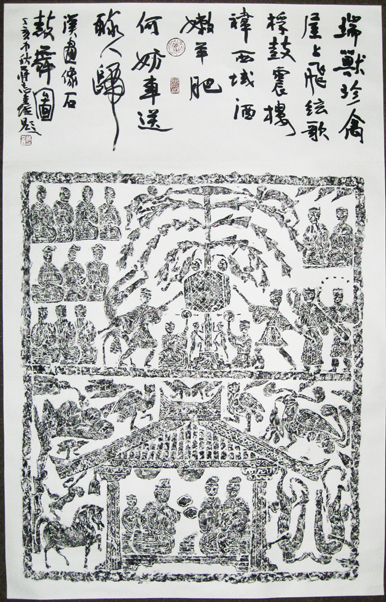 瑞獸珍禽
屋上飛絃歌
桴鼓震樓
西域酒
嫩羊肥
何妨車送
醉人歸
漢畫像石
鼓舞圖
丁亥
題